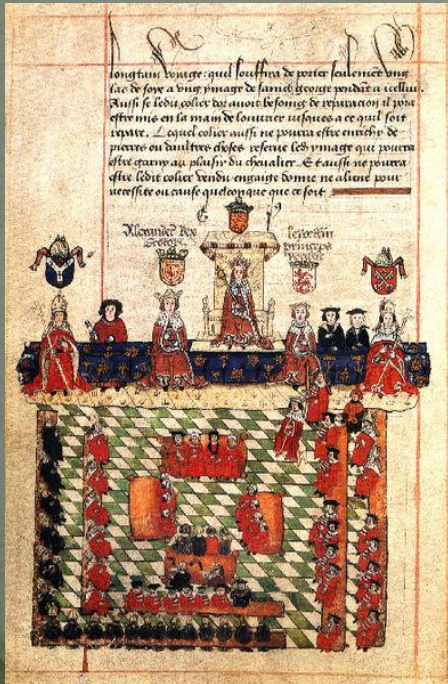 longtain voiage: quil souffira de porter seulement ung
las de soye a ung ymage de sainct george pendant a icellui.
Aussi se ledit colier dor auoit besoing de reparacion il pora
estre mis en la main de louurier iusques a ce quil soit
repare. Lequel colier aussi ne pourra estre enrichy de
pierres ou daultres choses reserue led ymage qui pourra
estre garny au plaisir du cheualier. Et aussi ne pourra
estre ledit colier vendu engaige donne ne aliene pour
necessite ou cause quelconque que ce soit.
Alexander Rex
Scotorum
princeps